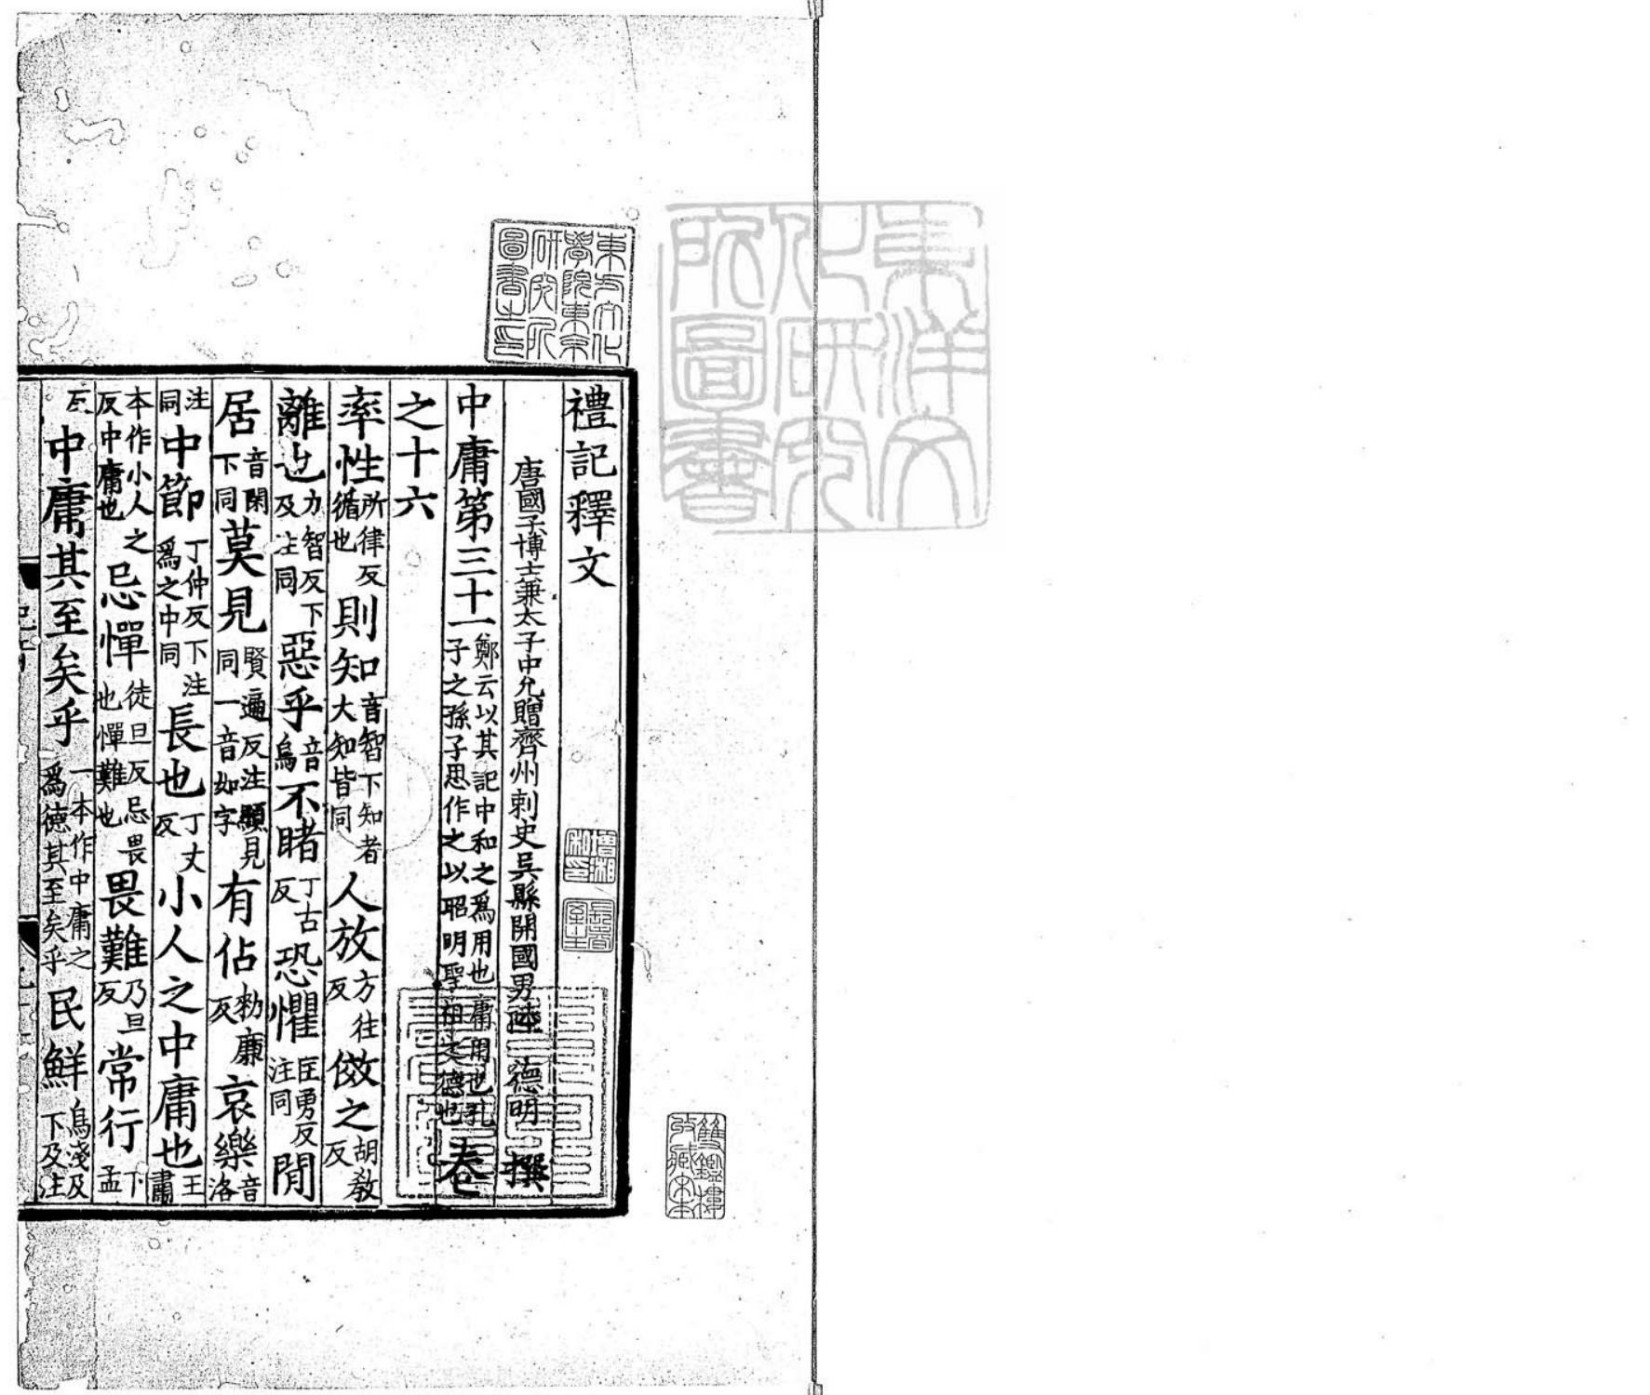 禮記釋文
唐國子博士兼太子中允贈齊州刺史吳縣開國男陸 德明 撰
中庸第三十一鄭云以其記中和之爲用也庸用也孔子之孫子思作之以昭明聖祖之德也卷
之十六
率性所律反循也則知音智下知者大知皆同人放方往反傚之胡教反
離也力智反下及注同惡乎音烏不睹丁古反恐懼匡勇反注同閒
居音閑下同莫見賢遍反注顯見同一音如字有佔勑廉反哀樂音洛
注同中節丁仲反下注爲之中同長也丁丈反小人之中庸也王肅
本作小人之反中庸也忌憚徒旦反忌畏也憚難也畏難乃旦反常行下孟
反中庸其至矣乎一本作中庸之爲德其至矣乎民鮮息淺反下及注
東方文化學院東京研究所圖書之印
東洋文化研究所圖書
雙鑑樓收藏宋本